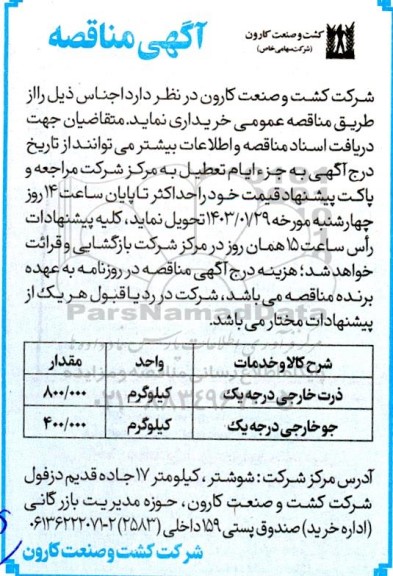 کشت و صنعت کارون
(شرکت سهامی خاص)
آگهی مناقصه
شرکت کشت و صنعت کارون در نظر دارد اجناس ذیل را از
طریق مناقصه عمومی خریداری نماید. متقاضیان جهت
دریافت اسناد مناقصه و اطلاعات بیشتر می توانند از تاریخ
درج آگهی به جزء ایام تعطیل به مرکز شرکت مراجعه و
پاکت پیشنهاد قیمت خود را حداکثر تا پایان ساعت ۱۴ روز
چهارشنبه مورخه ۱۴۰۳/۰۱/۲۹ تحویل نماید، کلیه پیشنهادات
رأس ساعت ۱۵ همان روز در مرکز شرکت بازگشایی و قرائت
خواهد شد؛ هزینه درج آگهی مناقصه در روزنامه به عهده
برنده مناقصه می باشد، شرکت در رد یا قبول هر یک از
پیشنهادات مختار می باشد.
ParsNamadData
شرح کالا و خدمات واحد مقدار
ذرت خارجی درجه یک کیلوگرم ۸۰۰/۰۰۰
جو خارجی درجه یک کیلوگرم ۴۰۰/۰۰۰
آدرس مرکز شرکت: شوشتر، کیلومتر ۱۷ جاده قدیم دزفول
شرکت کشت و صنعت کارون، حوزه مدیریت بازرگانی
(اداره خرید) صندوق پستی ۱۵۹ داخلی (۲۵۸۳) ۲-۰۶۱۳۶۲۲۲۰۷۱
شرکت کشت و صنعت کارون